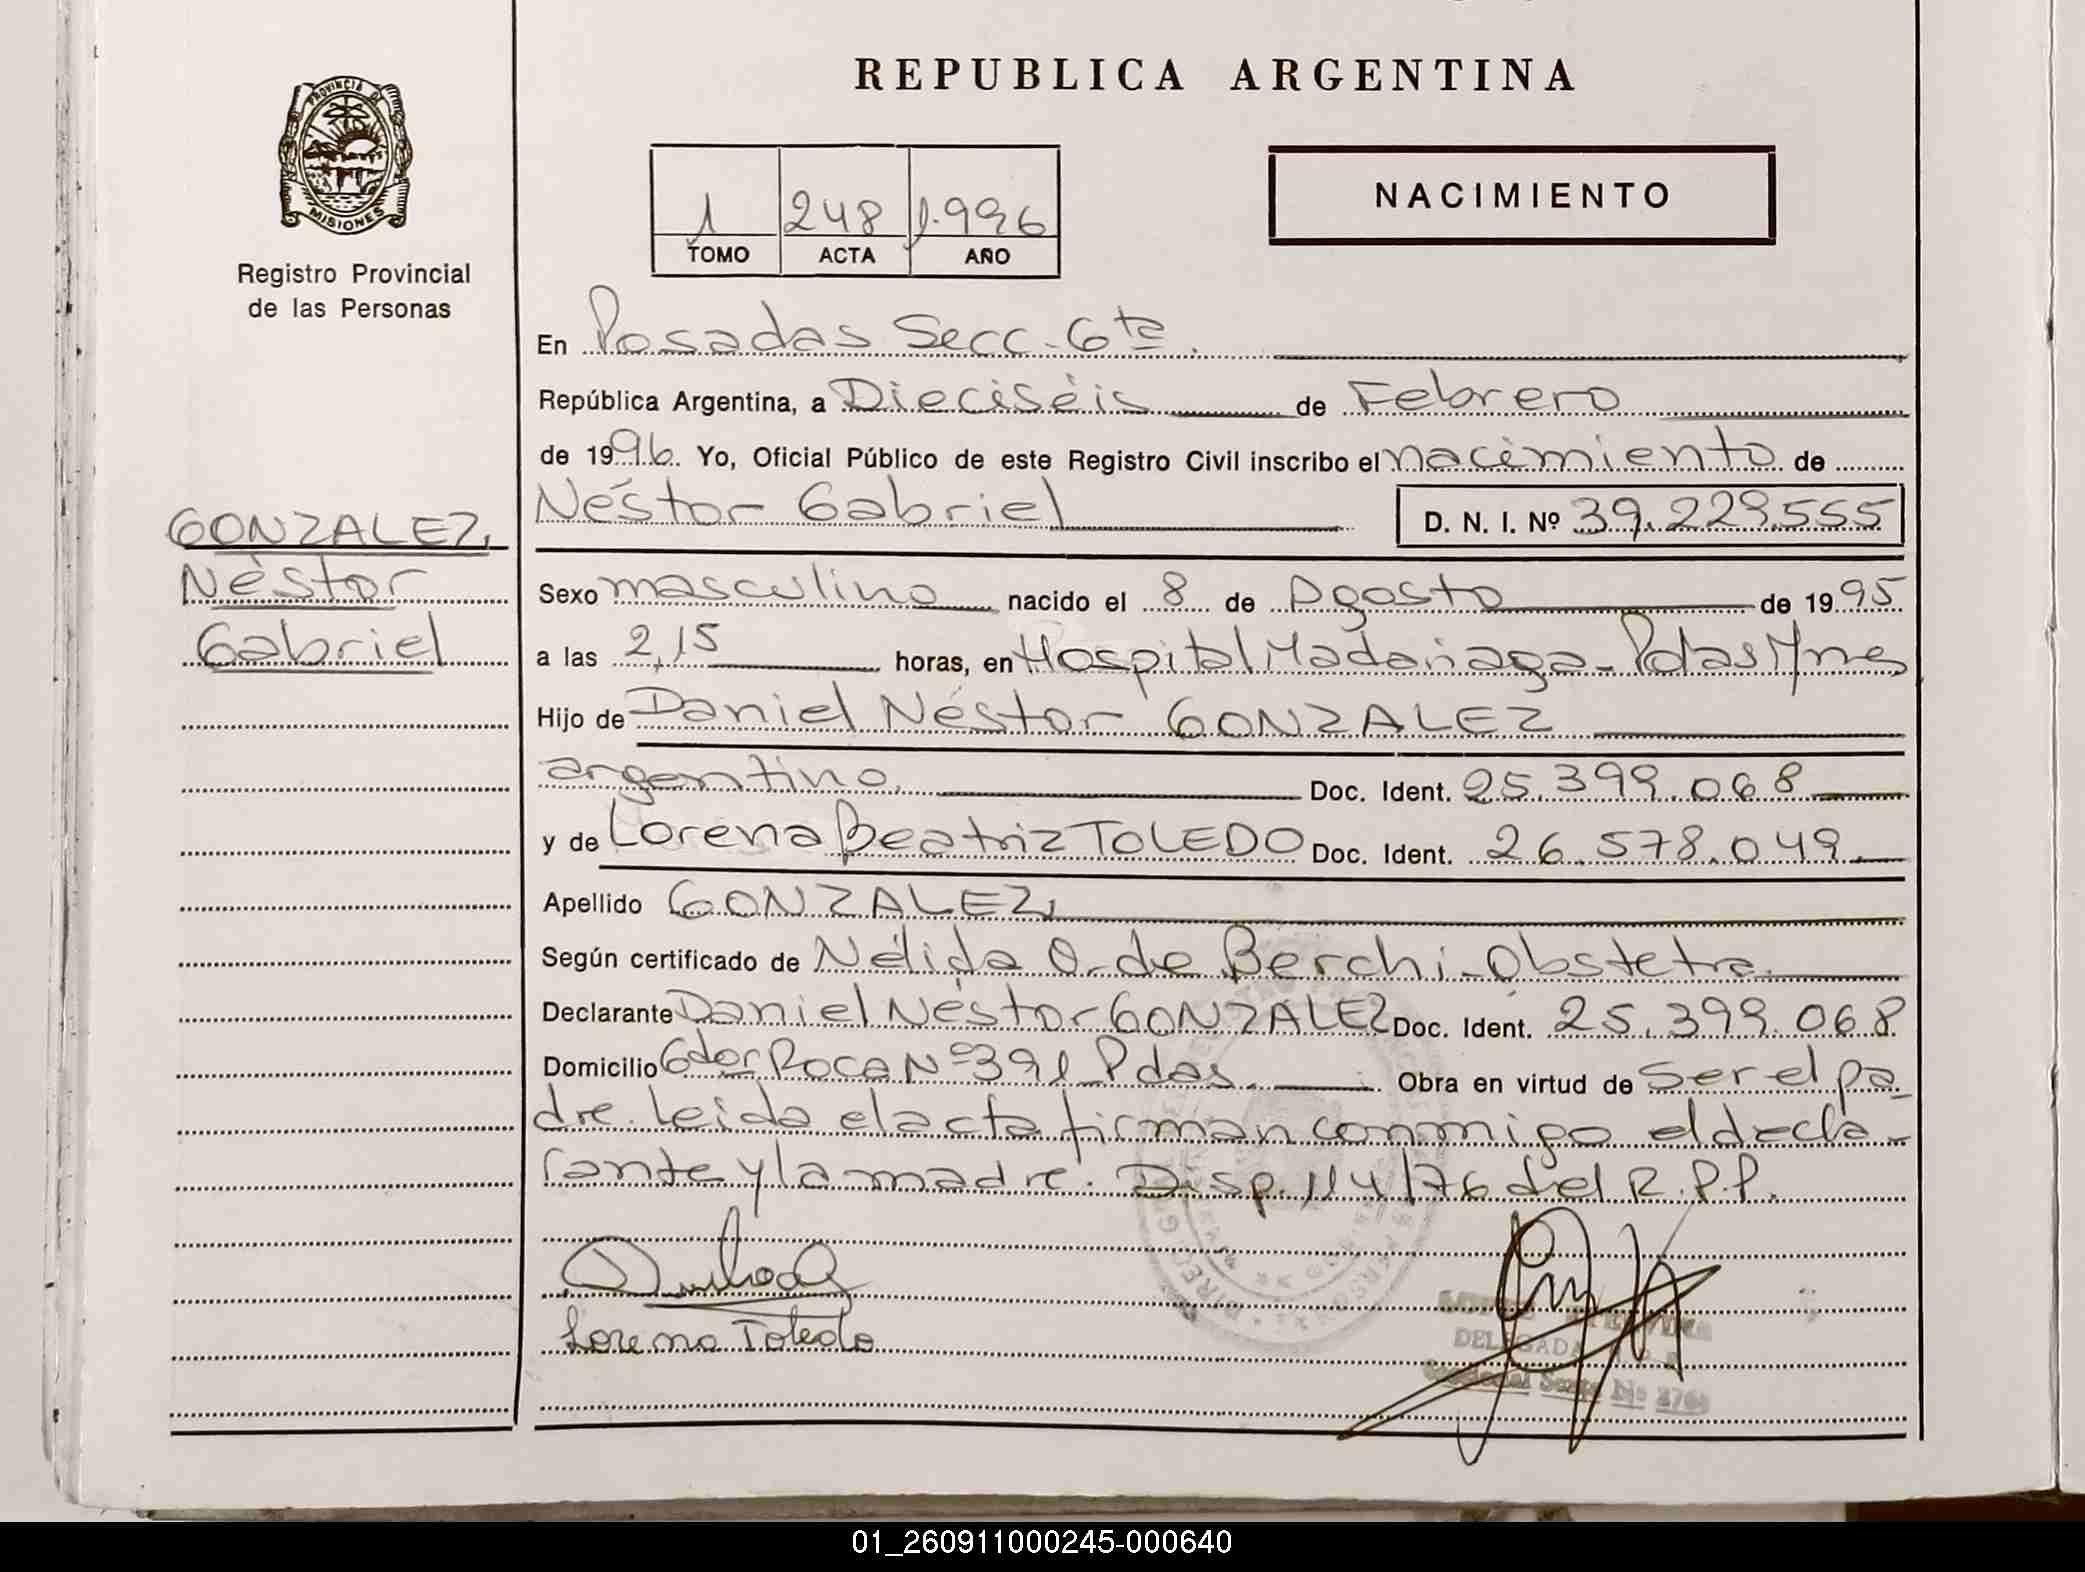 REPUBLICA ARGENTINA
PROVINCIA DE
MISIONES
Registro Provincial
de las Personas
1 248 1.996
TOMO ACTA AÑO
NACIMIENTO
En Posadas Secc. 6ta.
República Argentina, a Dieciséis de Febrero
de 1996 Yo, Oficial Público de este Registro Civil inscribo el nacimiento de
Néstor Gabriel D. N. I. Nº 39.229.555
GONZALEZ,
Néstor
Gabriel
Sexo masculino nacido el 8 de Agosto de 1995
a las 2,15 horas, en Hospital Madariaga - Pdas Mnes
Hijo de Daniel Néstor GONZALEZ
argentino. Doc. Ident. 25.399.068
y de Lorena Beatriz TOLEDO Doc. Ident. 26.578.049.
Apellido GONZALEZ,
Según certificado de Nélida O. de Berchi - Obstetra.
Declarante Daniel Néstor GONZALEZ Doc. Ident. 25.399.068
Domicilio Gdor Roca Nº 391 Pdas. Obra en virtud de ser el pa-
dre. Leida el acta firman conmigo el decla-
rante y la madre. Disp. 114/76 del R.P.P.
Lorena Toledo
DELEGADA
Seccional Sexta Nº
01_260911000245-000640